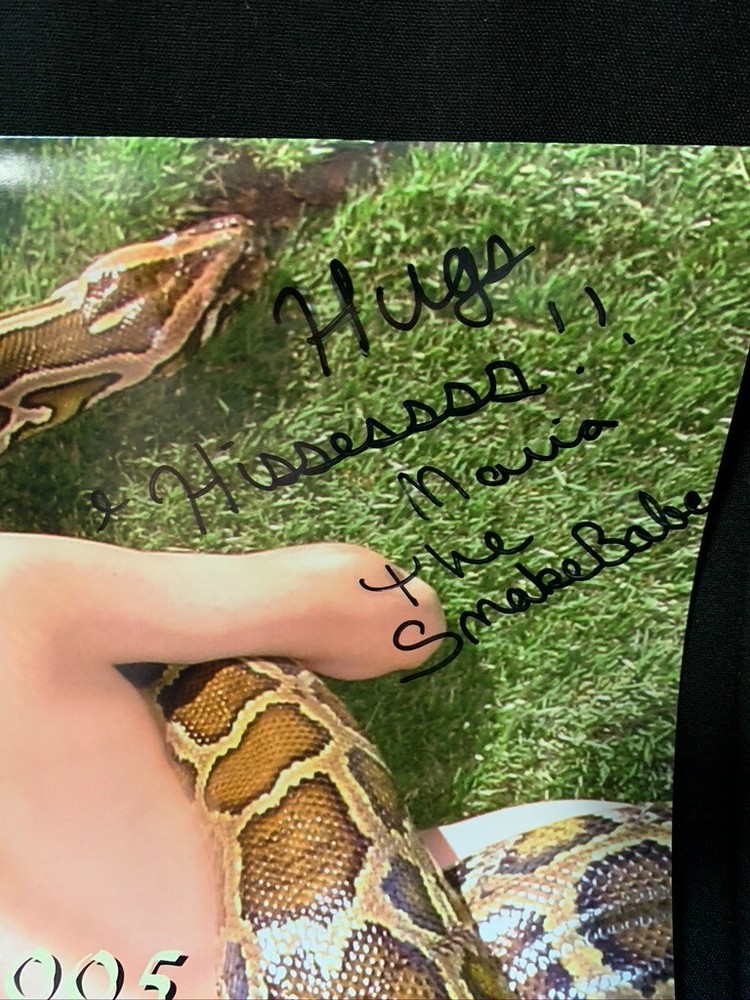 Hugs
& Hissessss!!
Maria
the
SnakeBabe
005